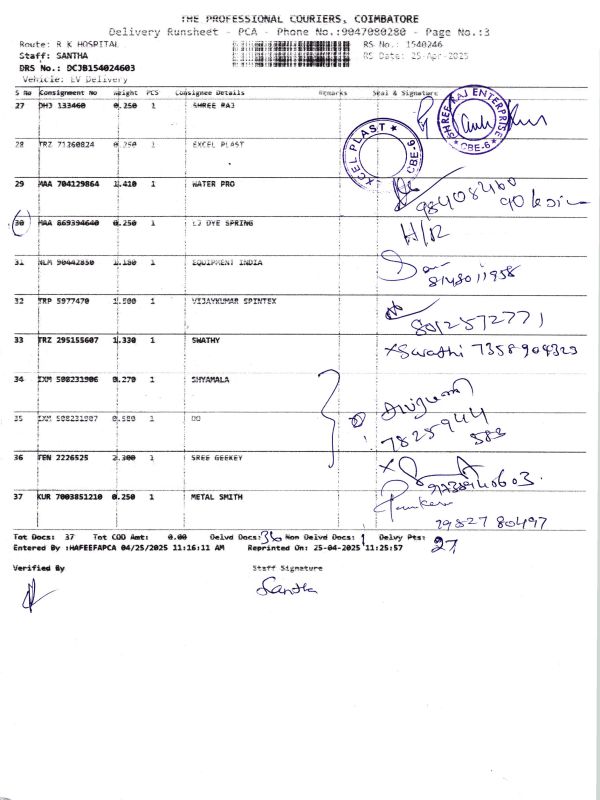 THE PROFESSIONAL COURIERS, COIMBATORE
Delivery Runsheet - PCA - Phone No.:9047080280 - Page No.:3
Route: R K HOSPITAL RS No.: 1540246
Staff: SANTHA RS Date: 25-Apr-2025
DRS No.: DCJB154024603
Vehicle: EV Delivery
S No Consignment No Weight PCS Consignee Details Remarks Seal & Signature
27 DHJ 133460 0.250 1 SHREE RAJ
SHREE RAJ ENTERPRISE * CBE-6 *
28 TRZ 71360824 0.250 1 EXCEL PLAST
XCEL PLAST * CBE-6 *
29 MAA 704129864 1.410 1 WATER PRO
9840848460
30 MAA 869394640 0.250 1 DYE SPRING
31 90442850 1.180 1 EQUIPMENT INDIA
8148011958
32 TRP 5977470 1.500 1 VIJAYKUMAR SPINTEX
8012572771
33 TRZ 295155607 1.330 1 SWATHY
x Swathi 7358904323
34 IXM 508231906 0.270 1 SHYAMALA
35 IXM 508231907 0.580 1 DO
7825944
583
36 TEN 2226525 2.300 1 SREE GEEKEY
37 KUR 7003851210 0.250 1 METAL SMITH
29827 80497
Tot Docs: 37 Tot COD Amt: 0.00 Delvd Docs: 36 Non Delvd Docs: 1 Delvy Pts: 27
Entered By :HAFEEFAPCA 04/25/2025 11:16:11 AM Reprinted On: 25-04-2025 11:25:57
Verified By Staff Signature
Santha